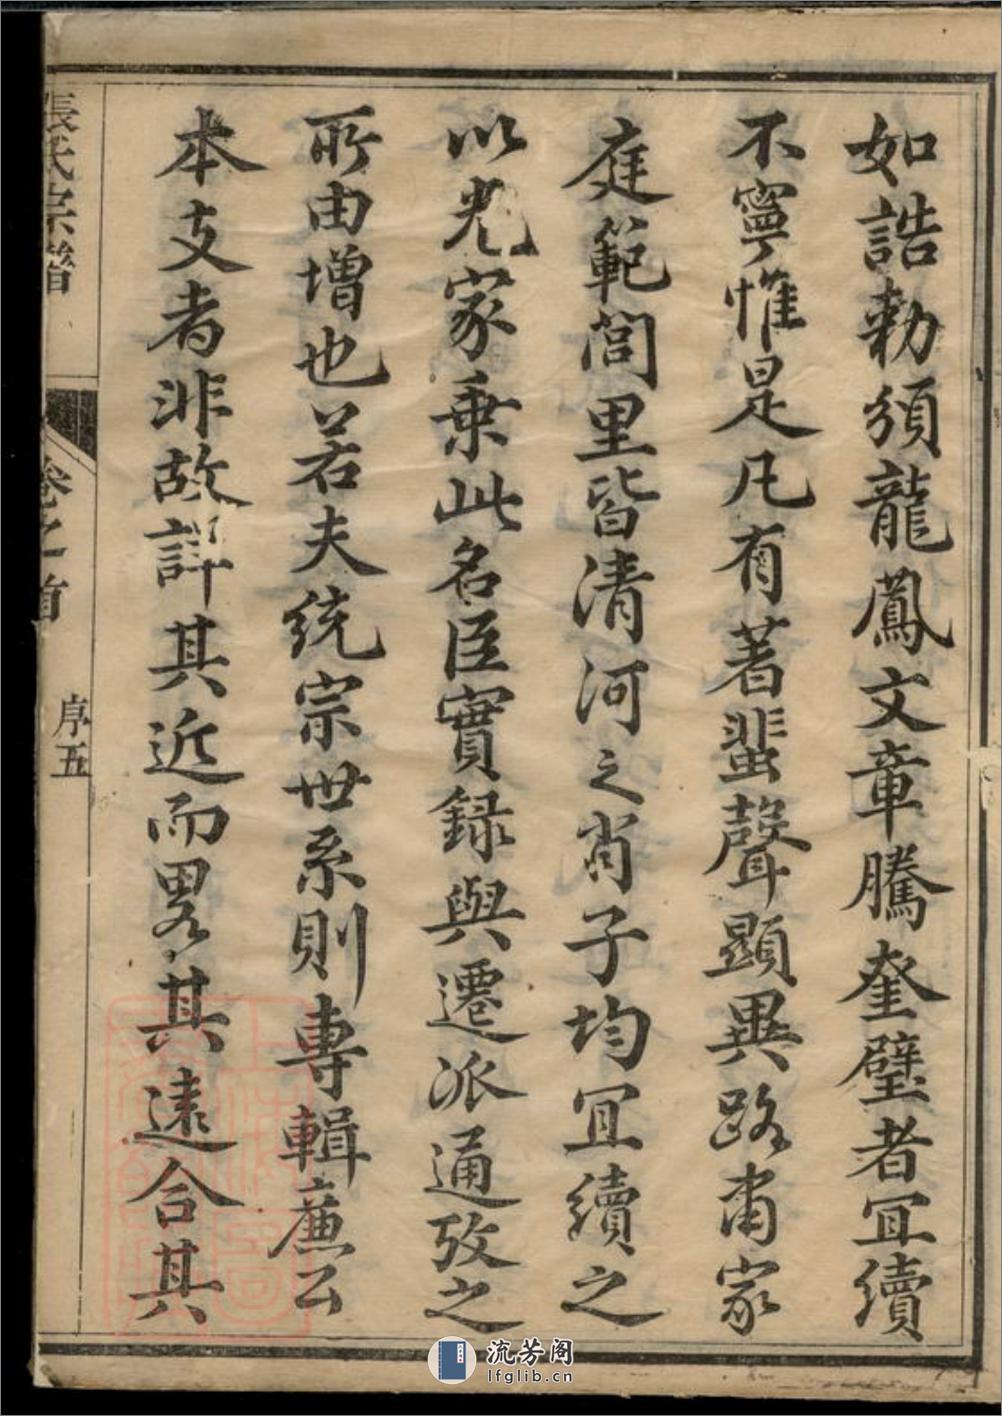 如誥勅頒龍鳳文章騰奎璧者冝續
不寧惟是凡有著蜚聲顯異路肅家
庭範閭里皆清河之肖子均冝續之
以光家乗此名臣實録與遷派通攷之
所由增也若夫統宗世系則專輯廉公
本支者非故詳其近而畧其遠合其
張氏宗譜
卷之首
序五
流芳阁
lfglib.cn